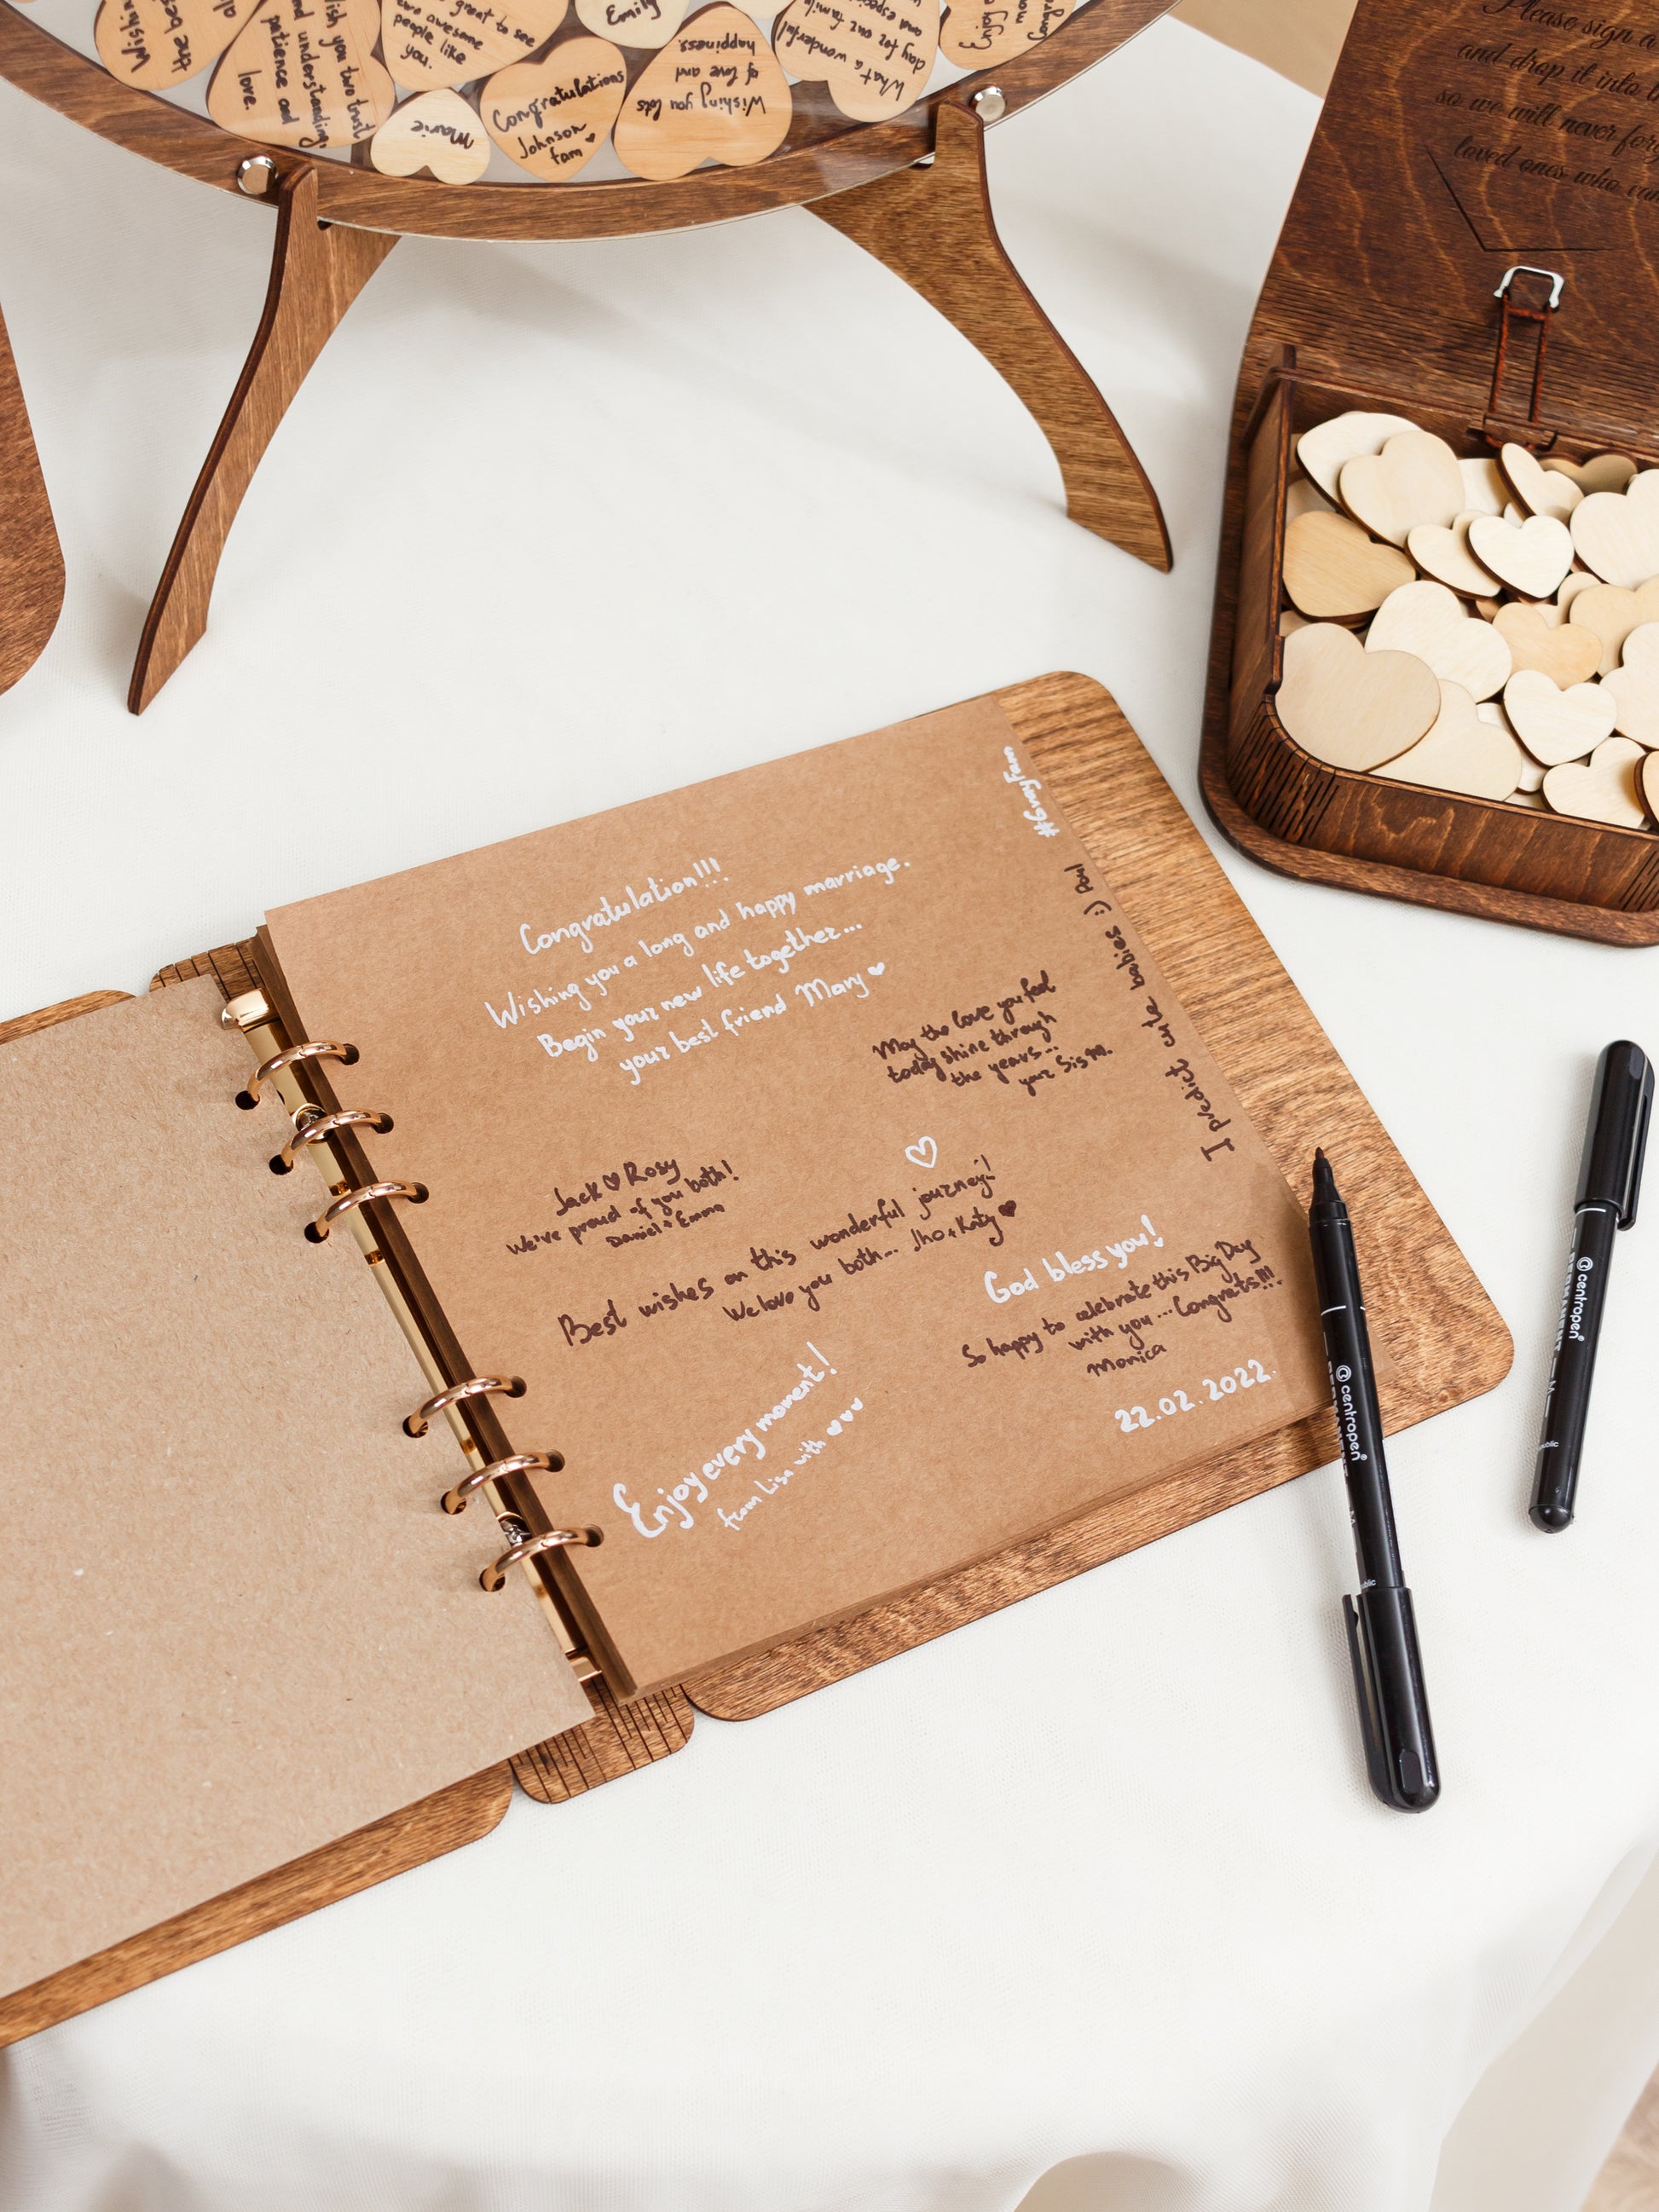 Wishing
the bes
al
ish you two trust
and understanding,
patience and
love.
great to see
two awesome
people like
you.
Emily
Marie
Congratulations
Johnson
fam
Wishing you lots
of love and
happiness.
What a wonderful
day for our famil
and especi
Please sign a
and drop it into t
so we will never forg
loved ones who cam
#GrayFam
Congratulation!!!
Wishing you a long and happy marriage.
Begin your new life together...
your best friend Mary
I predict cute babies :) Paul
May the love you feel
today shine through
the years...
your Sis M.
Jack Rosy
We've proud of you both!
Daniel + Emma
Best wishes on this wonderful journey!
We love you both... Jho + Katy
God bless you!
So happy to celebrate this Big Day
with you... Congrats!!!
Monica
Enjoy every moment!
from Lisa with
22.02.2022.
centropen
PERMANENT
centropen
PERMANENT M